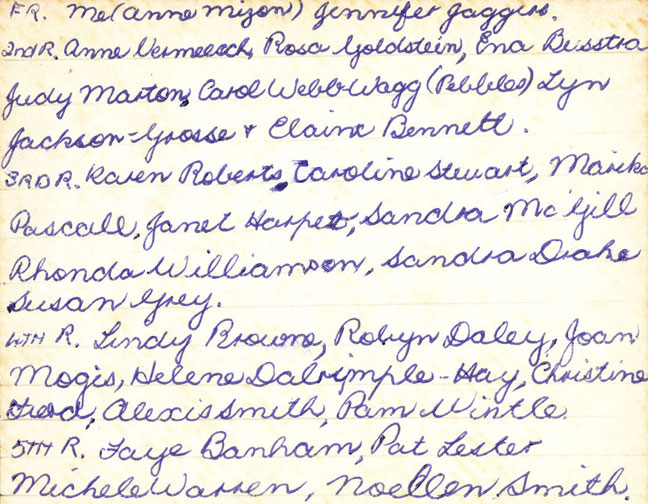 FR. Me (Anne Mizon) Jennifer Jaggers.
2nd R. Anne Vermeesch, Rosa Goldstein, Ena Buxstra
Judy Marton, Carol Webb-Wagg (Pebbles) Lyn
Jackson-Grosse & Elaine Bennett.
3RD R. Karen Roberts, Caroline Stewart, Marika
Pascall, Janet Harper, Sandra Mc'Gill
Rhonda Williamson, Sandra Drake
Susan Grey.
4TH R. Lindy Browne, Robyn Daley, Joan
Mogis, Helene Dalrimple-Hay, Christine
Alexis Smith, Pam Wintle.
5TH R. Faye Banham, Pat Lester
Michele Warren, Noellen Smith.